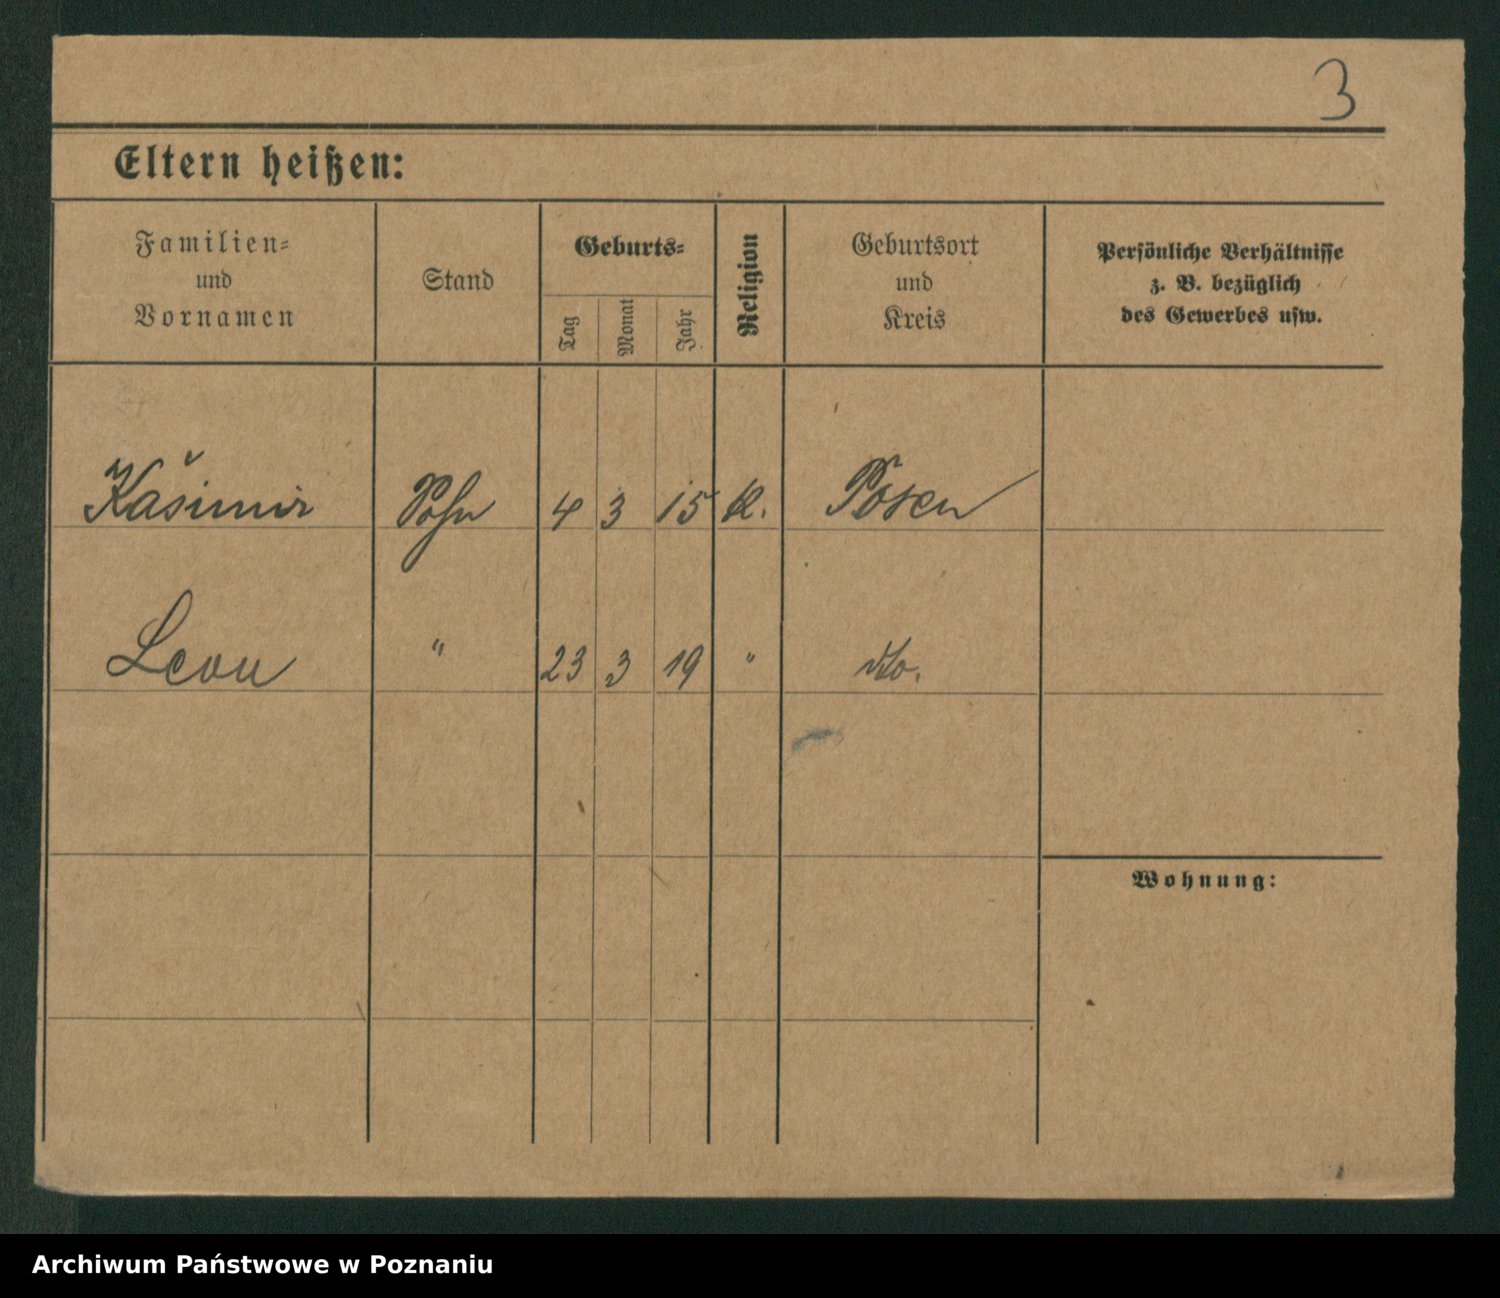 3
Eltern heißen:
Familien- und Vornamen
Stand
Geburts-
Tag
Monat
Jahr
Religion
Geburtsort und Kreis
Persönliche Verhältnisse z. B. bezüglich des Gewerbes usw.
Kasimir Sohn 4 3 15 K. Posen
Leon " 23 3 19 " dto.
Wohnung:
Archiwum Państwowe w Poznaniu